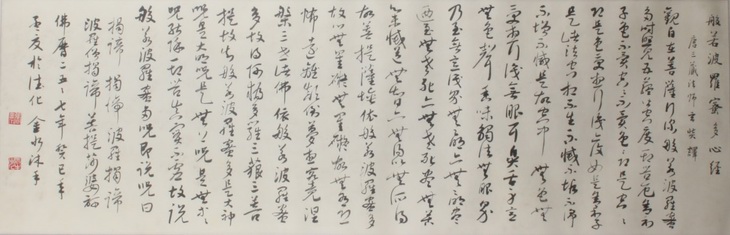 般若波羅蜜多心經
唐三藏法師玄奘譯
觀自在菩薩行深般若波羅蜜
多時照見五蘊皆空度一切苦厄舍利
子色不異空空不異色色即是空空
即是色受想行識亦復如是舍利子
是諸法空相不生不滅不垢不淨
不增不減是故空中無色無
受想行識無眼耳鼻舌身意
無色聲香味觸法無眼界
乃至無意識界無無明亦無無明盡
乃至無老死亦無老死盡無苦
集滅道無智亦無得以無所得
故菩提薩埵依般若波羅蜜多
故心無罣礙無罣礙故無有恐
怖遠離顛倒夢想究竟涅
槃三世諸佛依般若波羅蜜
多故得阿耨多羅三藐三菩
提故知般若波羅蜜多是大神
咒是大明咒是無上咒是無等等
咒能除一切苦真實不虛故說
般若波羅蜜多咒即說咒曰
揭諦 揭諦 波羅揭諦
波羅僧揭諦 菩提薩婆訶
佛曆二五五七年 癸巳年
孟夏於德化 金水沐手